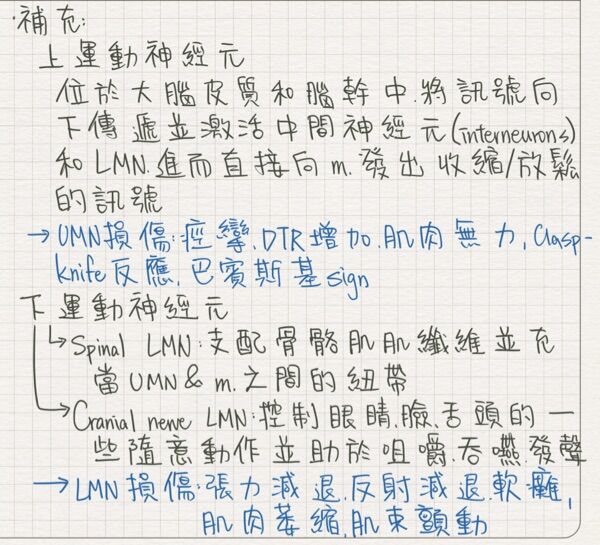 ·補充:
上運動神經元
位於大腦皮質和腦幹中.將訊號向
下傳遞並激活中間神經元(interneurons)
和LMN.進而直接向m.發出收縮/放鬆
的訊號
→UMN損傷:痙攣.DTR增加.肌肉無力,Clasp-
knife反應.巴賓斯基sign
下運動神經元
↳Spinal LMN:支配骨骼肌肌纖維並充
當UMN&m.之間的紐帶
↳Cranial nerve LMN:控制眼睛.臉.舌頭的一
些隨意動作並助於咀嚼.吞嚥.發聲
→LMN損傷:張力減退.反射減退.軟癱,
肌肉萎縮.肌束顫動